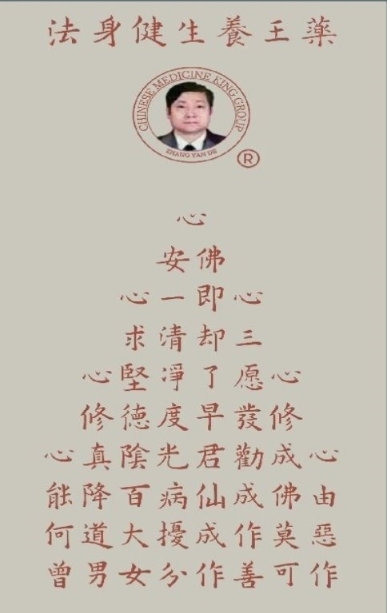 藥王養生健身法
CHINESE MEDICINE KING GROUP
®
心
安佛
心一即心
求清却三
心堅淨了愿心
修德度早發修
心真陰光君勸成心
能降百病仙成佛由
何道大擾成作莫惡
曾男女分作善可作